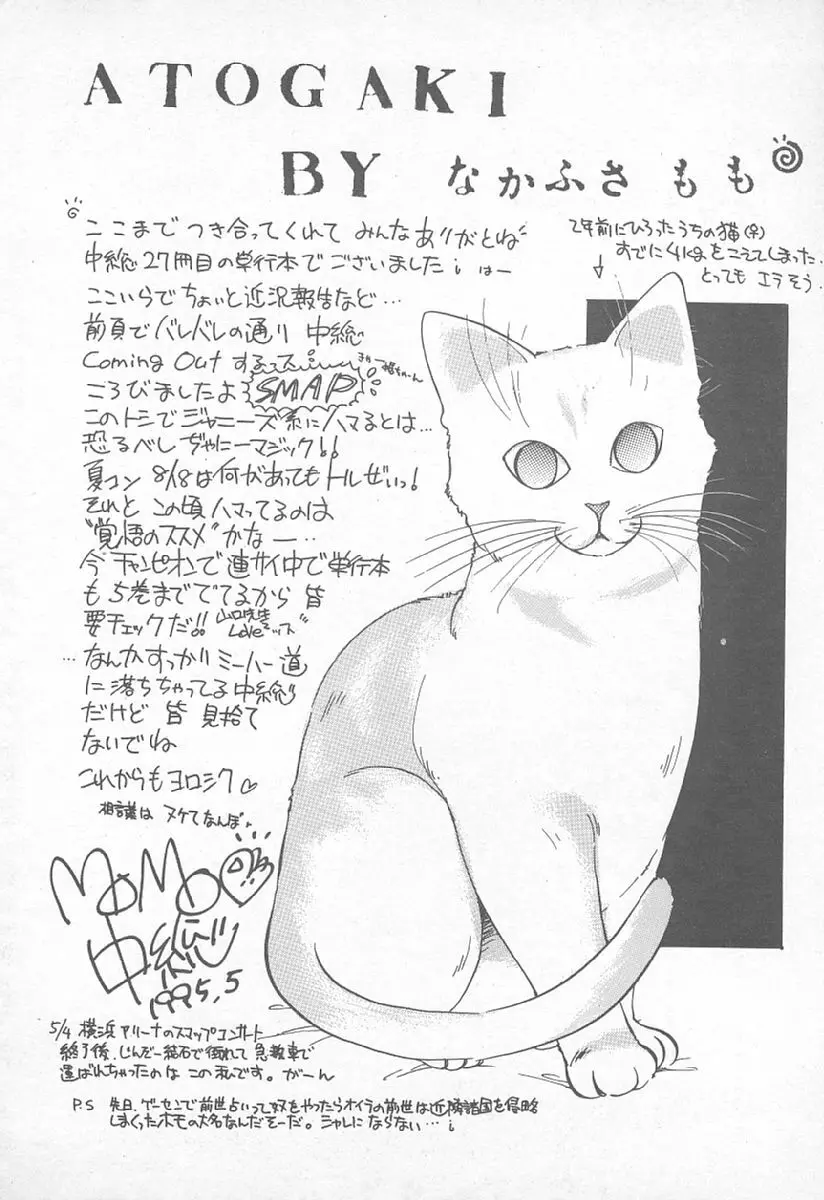 ATOGAKI
BY なかふさ もも
ここまで つき合ってくれて みんなありがとね
中総27冊目の単行本でございました はー
ここいらでちょいと近況報告など…
前頁でバレバレの通り 中総
Coming Out するっス
ころびましたよ SMAP
このトシでジャニーズ系にハマるとは…
恐るべし ぢゃにーマジック!!
夏コン 8/18は何があってもトルぜいっ!
それと この頃ハマってるのは
"覚悟のススメ"かなー…
今 チャンピオンで連サイ中で単行本
も5巻まででてるから 皆
要チェックだ!! 山口先生Loveッス
…なんかすっかりミーハー道
に落ちちゃってる中総
だけど 皆 見捨て
ないでね
これからもヨロシク♡
相談は ヌケてなんぼ
MOMO
中総
1995.5
2年前にひろったうちの猫(♀)
すでに4kgをこえてしまった.
とっても エラそう.
5/4 横浜アリーナのスマップコンサート
終了後、じんぞー結石で倒れて 救急車で
運ばれちゃったのは この私です。がーん
P.S 先日、ゲーセンで前世占いって奴をやったらオイラの前世は近隣諸国を侵略
しまくったホモの大名なんだそーだ。シャレにならない…